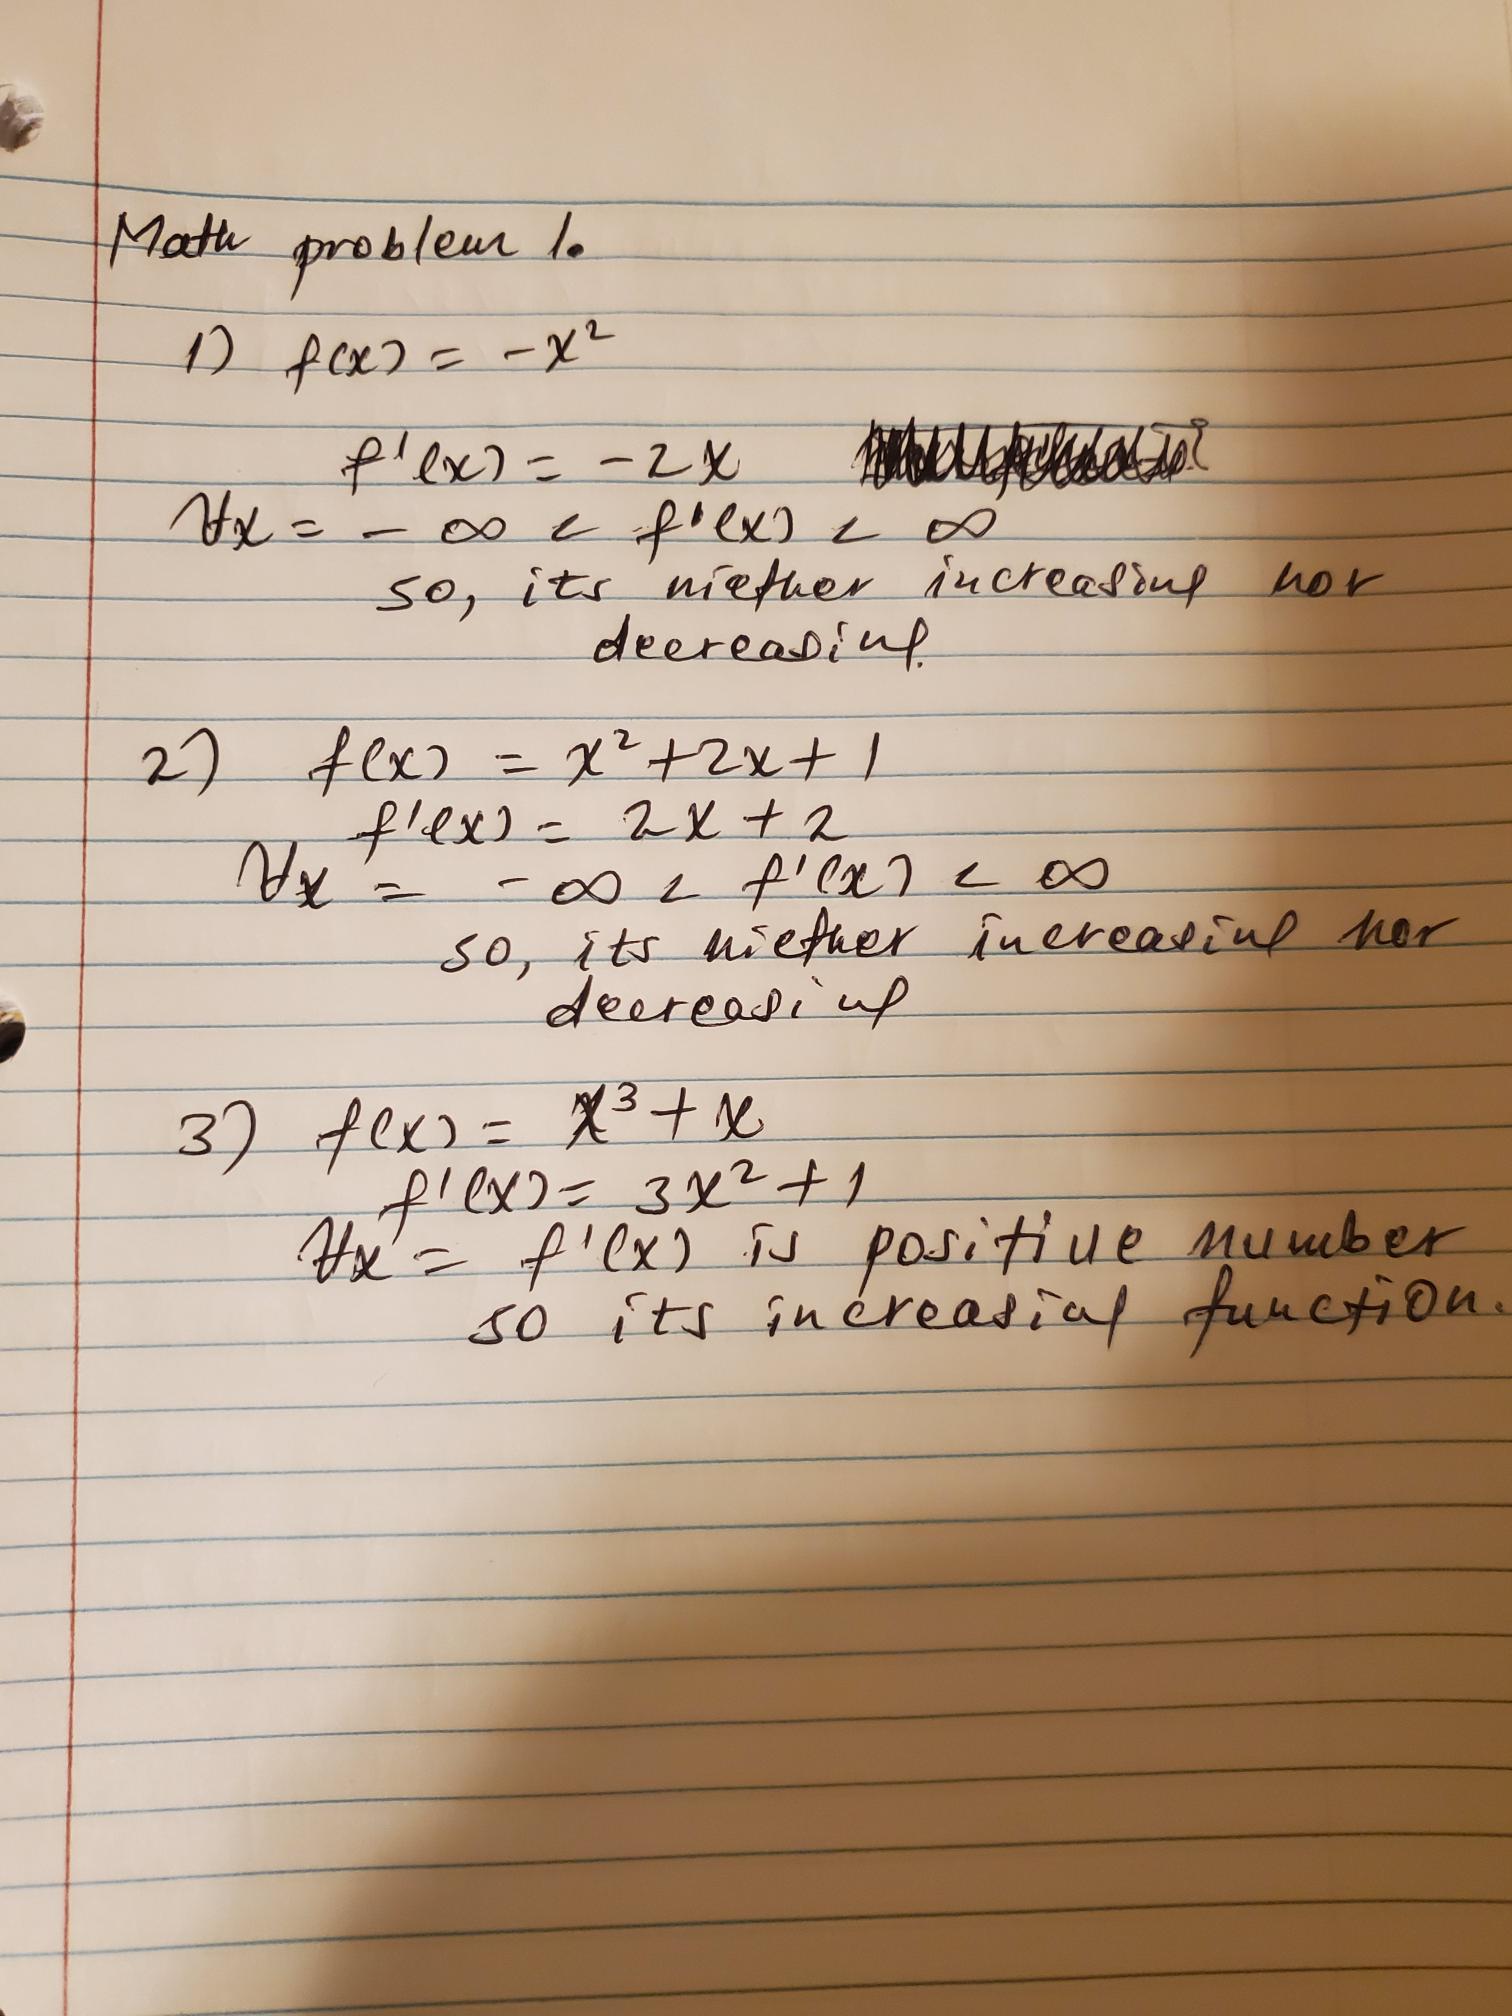 Math problem 1.
1) f(x) = -x²
f'(x) = -2x
∀x = -∞ < f'(x) < ∞
so, its niether increasing nor
decreasing.
2) f(x) = x²+2x+1
f'(x) = 2x+2
∀x = -∞ < f'(x) < ∞
so, its niether increasing nor
decreasing
3) f(x) = x³+x
f'(x) = 3x²+1
∀x = f'(x) is positive number
so its increasing function.